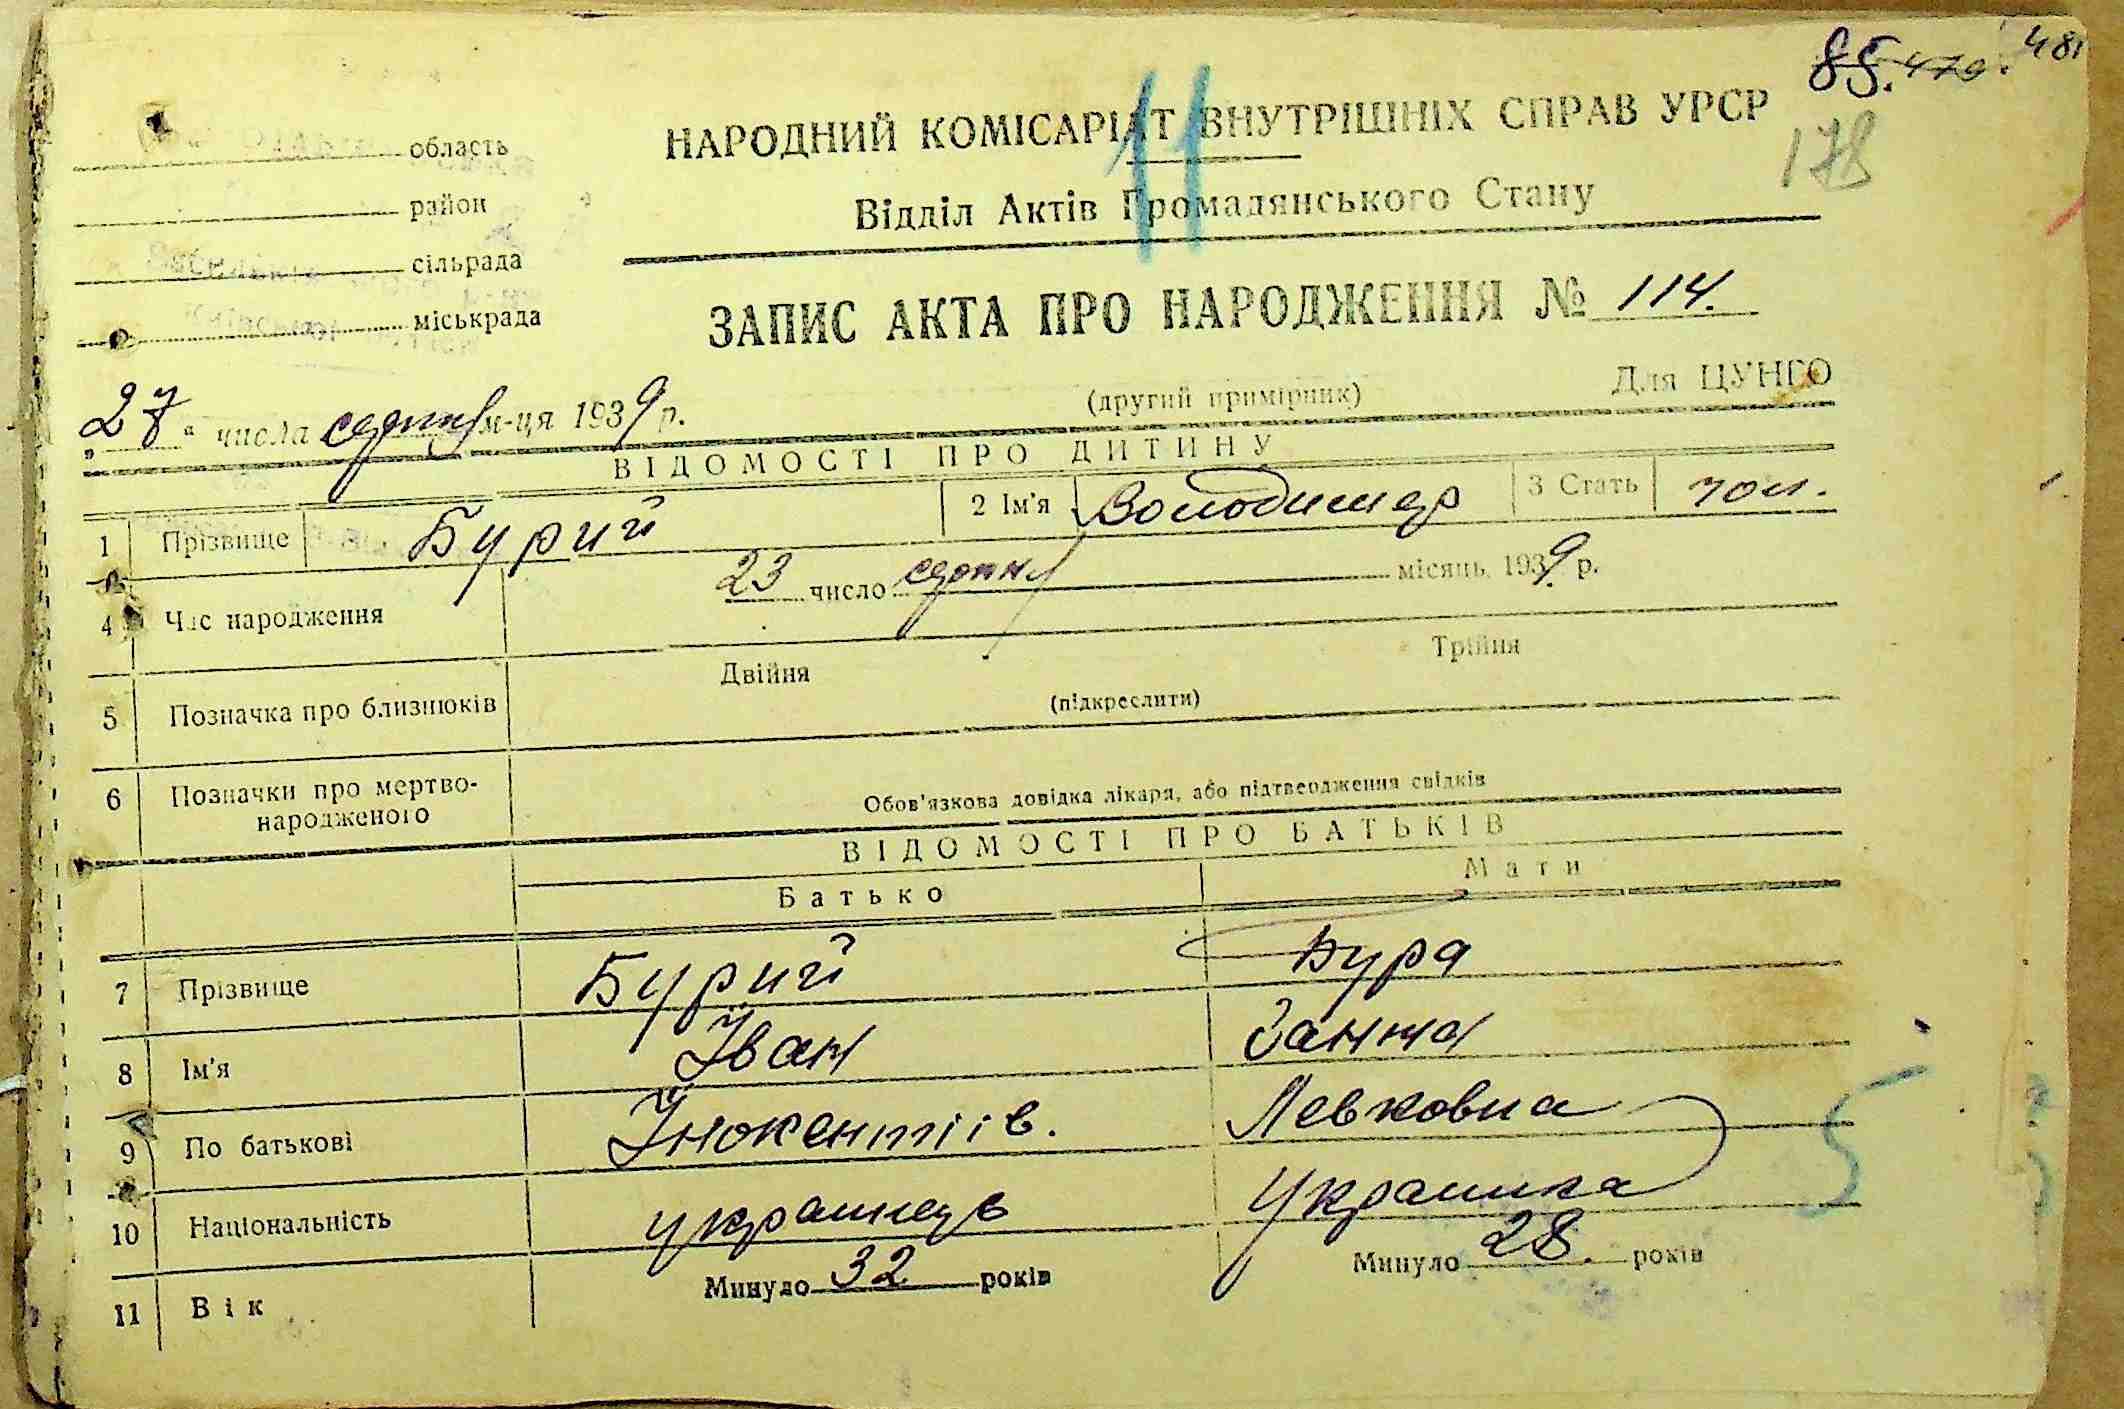 85. 479. 481
178
область
район
сільрада
міськрада
НАРОДНИЙ КОМІСАРІАТ ВНУТРІШНІХ СПРАВ УРСР
Відділ Актів Громадянського Стану
ЗАПИС АКТА ПРО НАРОДЖЕННЯ № 114.
(другий примірник) Для ЦУНГО
„27“ числа серпня м-ця 1939 р.
ВІДОМОСТІ ПРО ДИТИНУ
1 Прізвище Бурий 2 Ім'я Володимер 3 Стать чол.
4 Час народження 23 число серпня місяць 1939 р.
5 Позначка про близнюків Двійня Трійня
(підкреслити)
6 Позначки про мертво-
народженого Обов'язкова довідка лікаря, або підтвердження свідків
ВІДОМОСТІ ПРО БАТЬКІВ
Батько Мати
7 Прізвище Бурий Бура
8 Ім'я Іван Ганна
9 По батькові Інокентіів. Левковна
10 Національність українець Українка
11 Вік Минуло 32 років Минуло 28. років